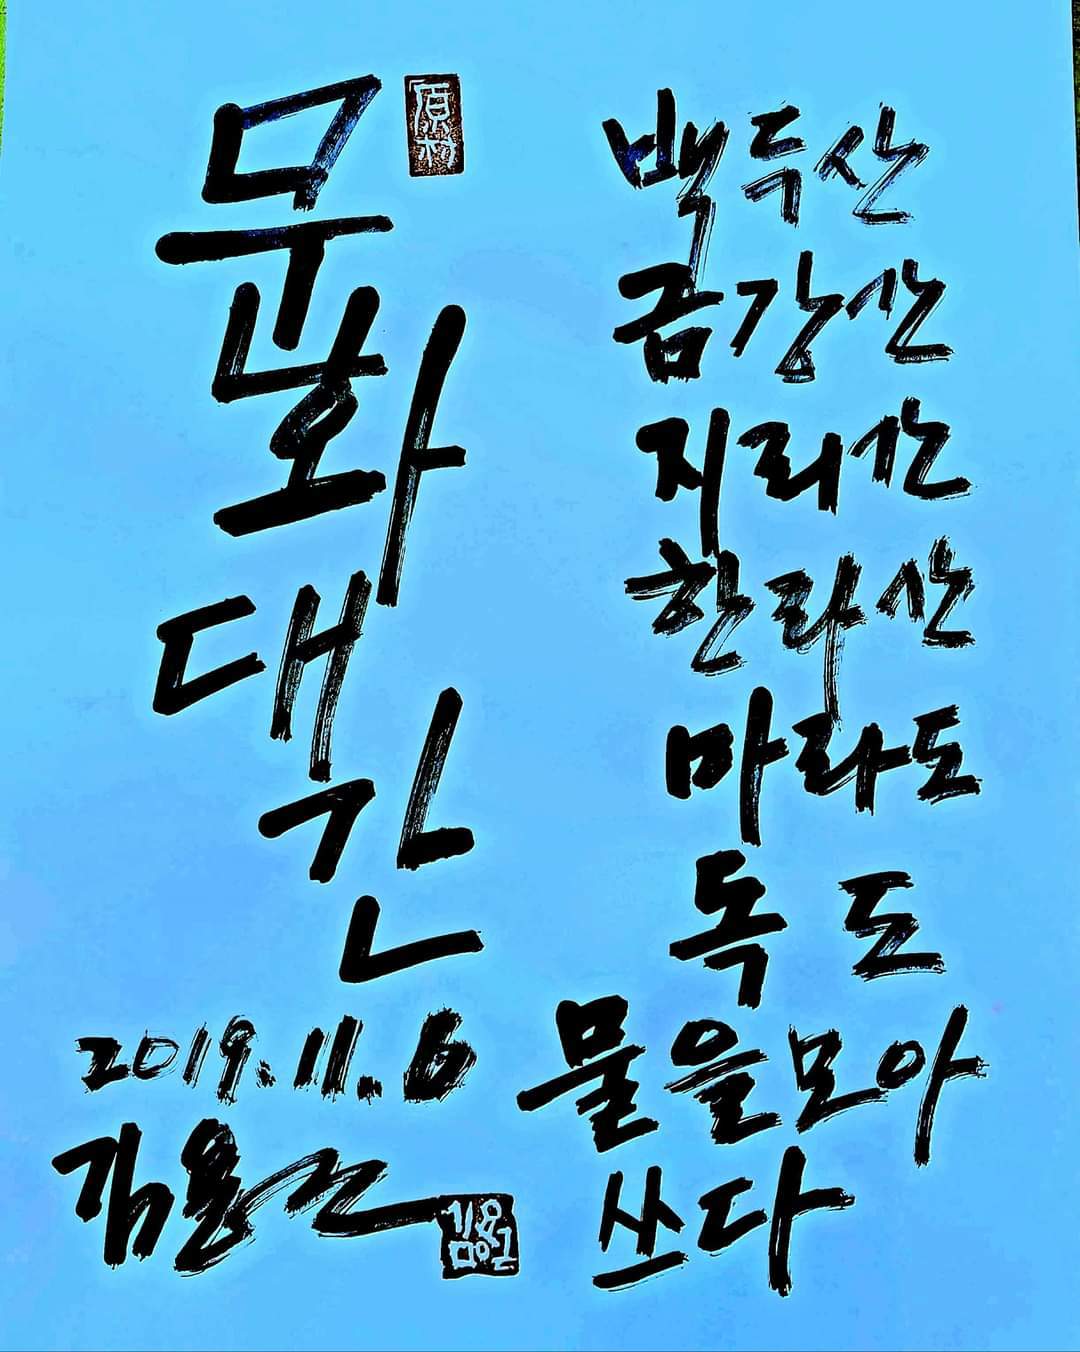 문화대간
原村
백두산
금강산
지리산
한라산
마라도
독도
물을모아
쓰다
2019.11.6
김용근